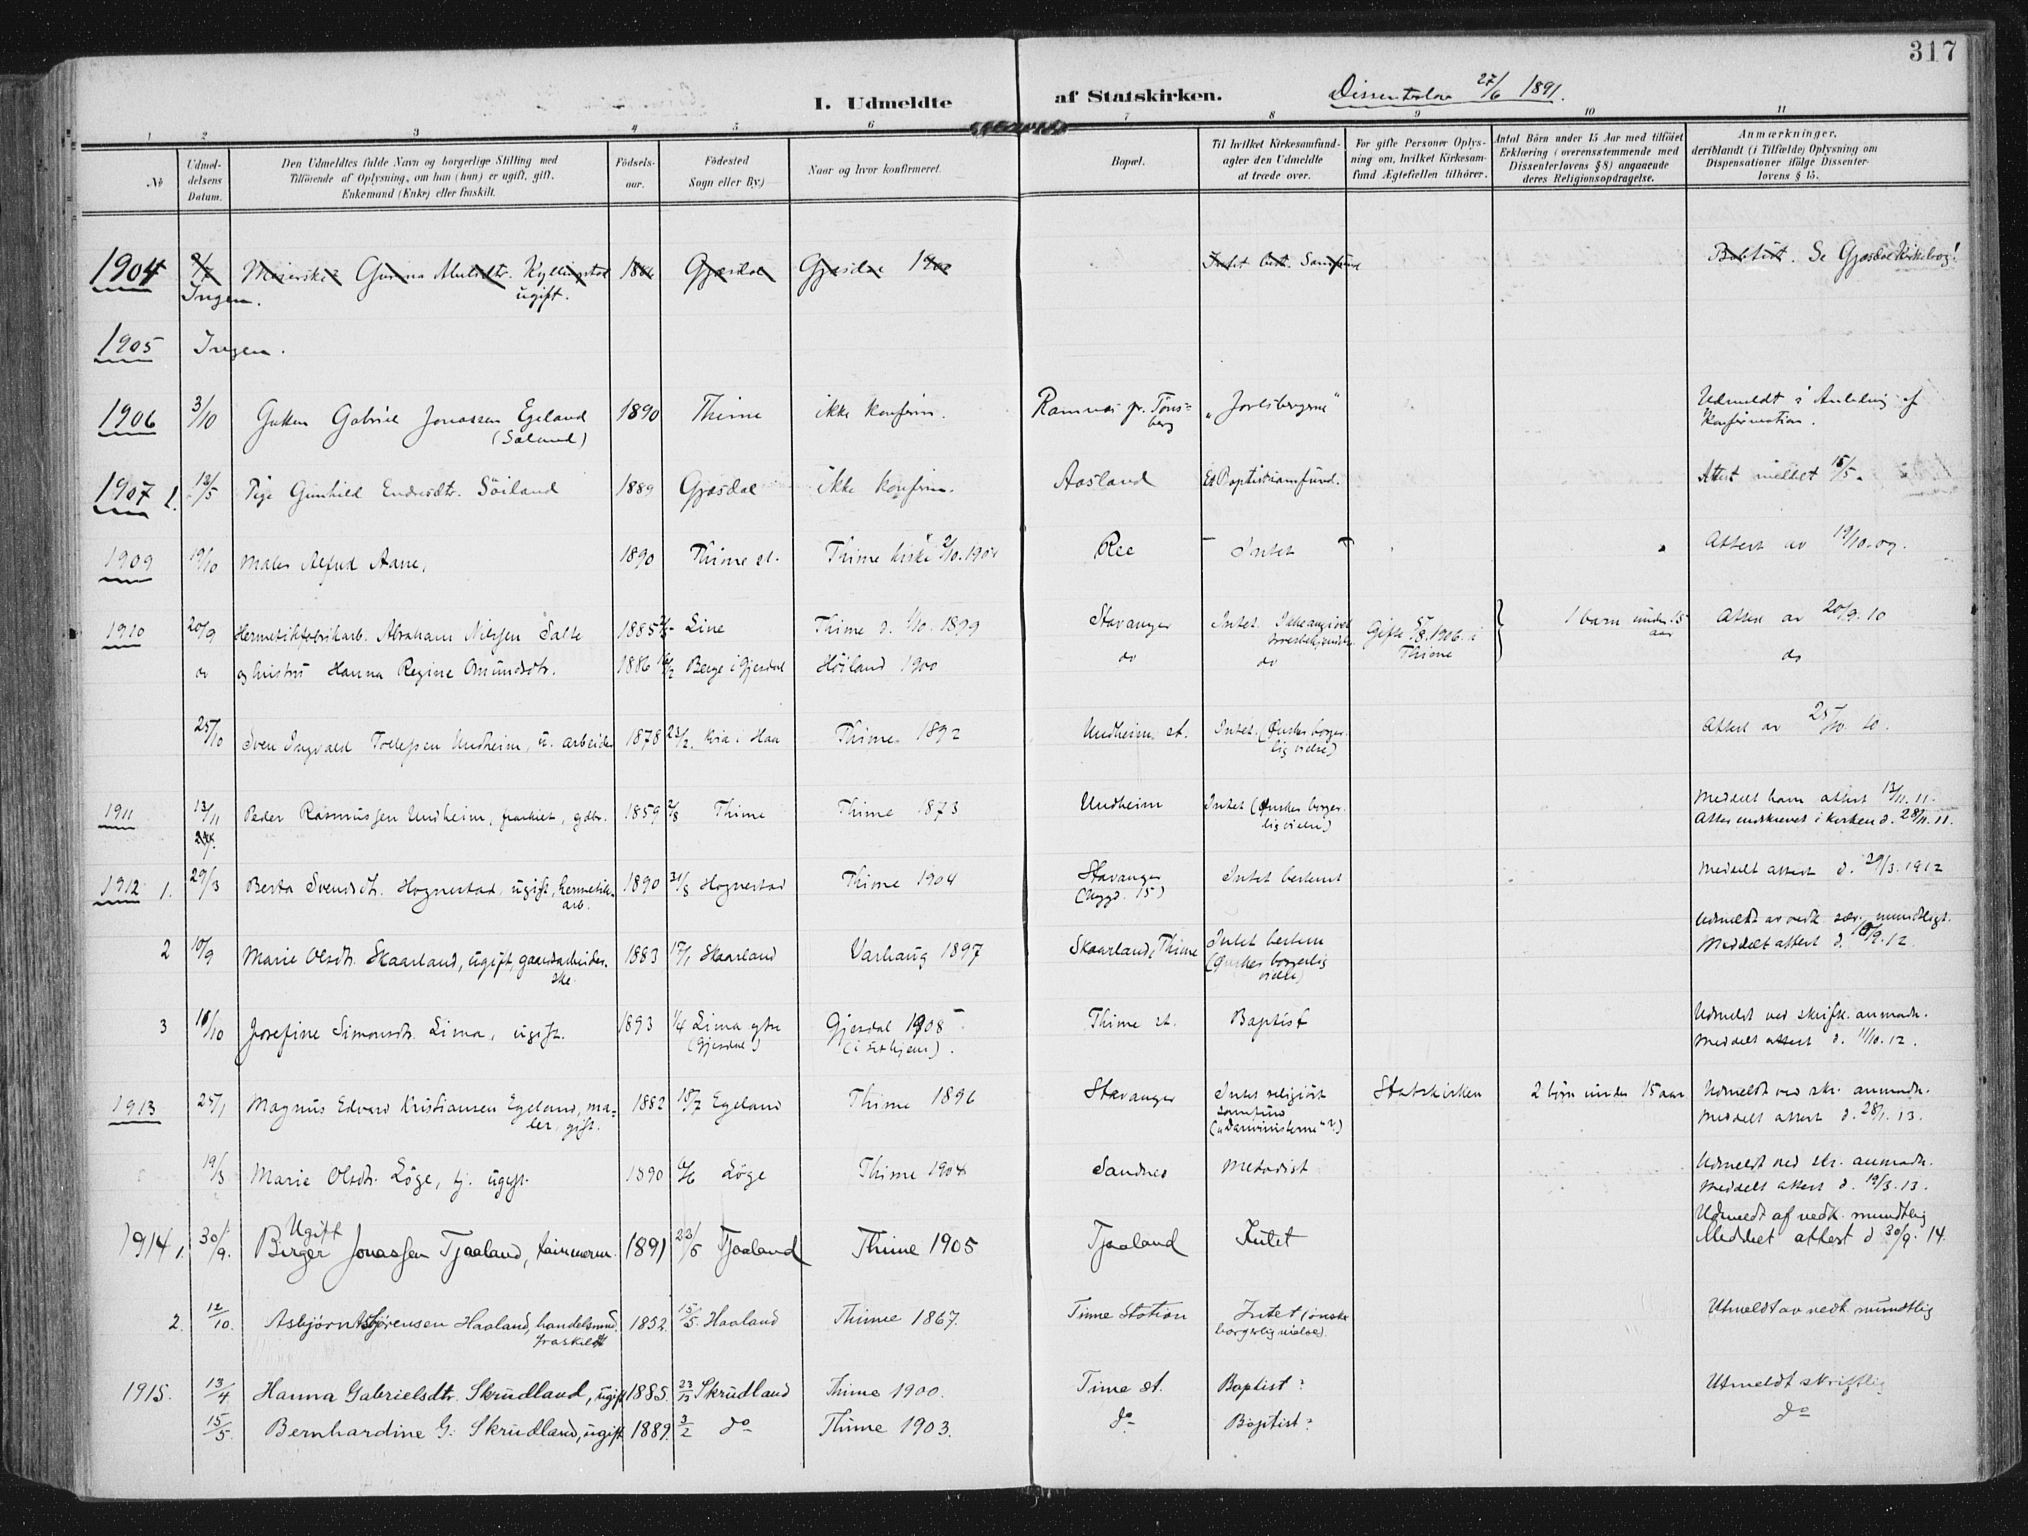 317
I. Udmeldte af Statskirken. Dissenterlov 27/6 1891.
1 2 3 4 5 6 7 8 9 10 11
No
Udmel-
delsens
Datum.
Den Udmeldtes fulde Navn og borgerlige Stilling med
Tilföiende af Oplysning, om han (hun) er ugift, gift,
Enkemand (Enke) eller fraskilt.
Födsels-
aar.
Födested
Sogn eller By.)
Naar og hvor konfirmeret.
Bopæl.
Til hvilket Kirkesamfund-
agter den Udmeldte
at træde over.
For gifte Personer Oplys-
ning om, hvilket Kirkesam-
fund Ægtefællen tilhörer.
Antal Börn under 15 Aar med tilföiet
Erklæring (overensstemmende med
Dissenterlovens § 8) angaaende
deres Religionsopdragelse.
Anmærkninger,
deriblandt (i Tilfælde) Oplysning om
Dispensationer ifölge Dissenter-
lovens § 15.
1904 Gjæsdal Gjæsdal 1900 Intet best. Samfund . Se Gjæsdal Kirkebog!
Ingen. ugift.
1905 Ingen.
1906 3/10 Gutten Gabriel Jonassen Egeland 1890 Thime ikke konfirm. Ramnæs pr. Töns= „Jarlsbergerne" Udmeldt i Anledning af
(Söland) berg Konfirmation.
1907 1. 13/5 Pige Gunhild Endresdtr. Söiland 1889 Gjæsdal ikke konfirm. Aasland Et Baptistsamfund. Attest meldet 15/5.
1909 19/10 Maler Alfred Aane, 1890 Thime st. Thime kirke 2/10.1904 Ree Intet Attest av 19/10.09.
1910 20/9 Hermetikfabrikarb. Abraham Nilssen Salte 1885 Line Thime d. 1/10 1899 Stavanger Intet. Gifte 5/8.1906 i Thime 1 barn under 15 aar Attest av 20/9.10
do og hustru Hanna Regine Omundsdtr. 1886 Berge i Gjesdal Höiland 1900 do do do
25/10 Sven Ingvald Tollefsen Undheim, u. arbeider 1878 23/2. Kvia i Haa Thime 1892 Undheim st. Intet. (Önsker borger-
lig vielse) Attest av 25/10. 10.
1911 13/11 Peder Rasmussen Undheim, fraskilt, gdbr. 1859 2/8 Thime Thime 1873 Undheim Intet (Önsker borger-
lig vielse) Meddelt ham attest 13/11.11.
i kirken d. 28/11.11.
1912 1. 29/3 Berta Svendsdtr. Hognestad, ugift, hermetik-
arb. 1890 31/8 Hognestad Thime 1904 Stavanger
(Nygd. 15) Intet bestemt Meddelt attest d. 29/3.1912
2 10/9 Marie Olsdtr. Skaarland, ugift, gaardarbeider-
ske 1883 17/1 Skaarland Varhaug 1897 Skaarland, Thime Intet bestem
(Önsker borgerlig
vielse) Udmeldt av vedk. mundtligt.
Meddelt attest d. 10/9.12.
3 11/10 Josefine Simonsdtr. Lima, ugift. 1893 1/4 Lima ytre
(Gjesdal) Gjesdal 1908
. Thime st. Baptist Udmeldt ved skriftl. anmodn.
Meddelt attest d. 11/10.12.
1913 25/1 Magnus Edvard Kristiansen Egeland, ma-
ler, gift. 1882 15/7 Egeland Thime 1896 Stavanger Intet religiöst
samfund
(„Darwinisterne"?) Statskirken 2 börn under 15 aar Udmeldt ved skr. anmodn.
Meddelt attest d. 28/1.13.
19/3 Marie Olsdtr. Löge, tj. ugift. 1890 6/6 Löge Thime 1904 Sandnes Metodist Udmeldt ved skr. anmodn.
Meddelt attest d. 19/3.13.
1914 1. 30/9. Ugift
Birger Jonassen Tjaaland, tømmerm. 1891 23/5 Tjaaland Thime 1905 Tjaaland Intet Udmeldt af vedk. mundtlig
Meddelt attest d 30/9. 14.
2. 12/10. Asbjørn Asbjørensen Haaland, handelsmd.
fraskildt 1852. 15/5. Haaland Thime 1867. Time Station Intet (ønske
borgerlig vielse). Utmeldt av vedk. mundtlig
1915. 13/4 Hanna Gabrielsdtr. Skrudland, ugift 1885. 23/12 Skrudland Thime 1900. Time st. Baptist? Utmeldt skriftlig
15/5. Bernhardine G. Skrudland, ugift 1889. 3/2 do Thime 1903. do Baptist? do